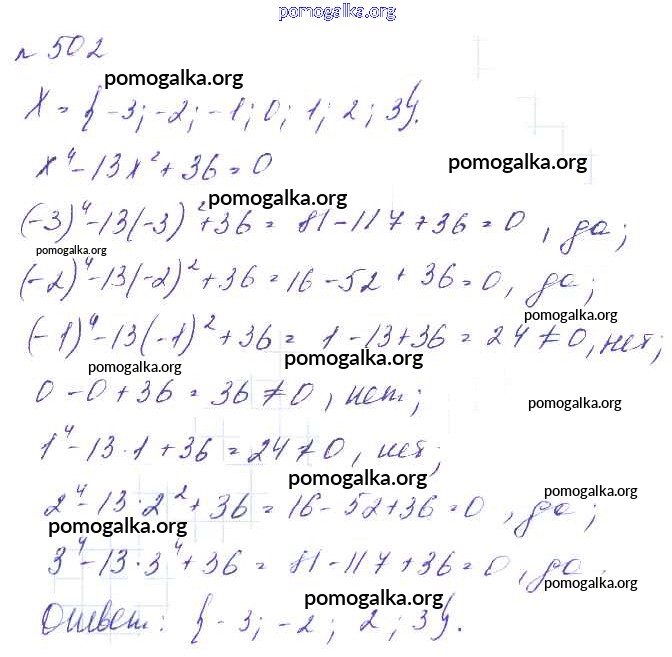 pomogalka.org
№ 502
pomogalka.org
X = {-3; -2; -1; 0; 1; 2; 3}.
x⁴ - 13x² + 36 = 0
pomogalka.org
pomogalka.org
(-3)⁴ - 13(-3)² + 36 = 81 - 117 + 36 = 0, да;
pomogalka.org
(-2)⁴ - 13(-2)² + 36 = 16 - 52 + 36 = 0, да;
pomogalka.org
(-1)⁴ - 13(-1)² + 36 = 1 - 13 + 36 = 24 ≠ 0, нет;
pomogalka.org
pomogalka.org
0 - 0 + 36 = 36 ≠ 0, нет;
pomogalka.org
1⁴ - 13 · 1 + 36 = 24 ≠ 0, нет;
pomogalka.org
pomogalka.org
2⁴ - 13 · 2² + 36 = 16 - 52 + 36 = 0, да;
pomogalka.org
3⁴ - 13 · 3⁴ + 36 = 81 - 117 + 36 = 0, да.
pomogalka.org
pomogalka.org
Ответ: {-3; -2; 2; 3}.